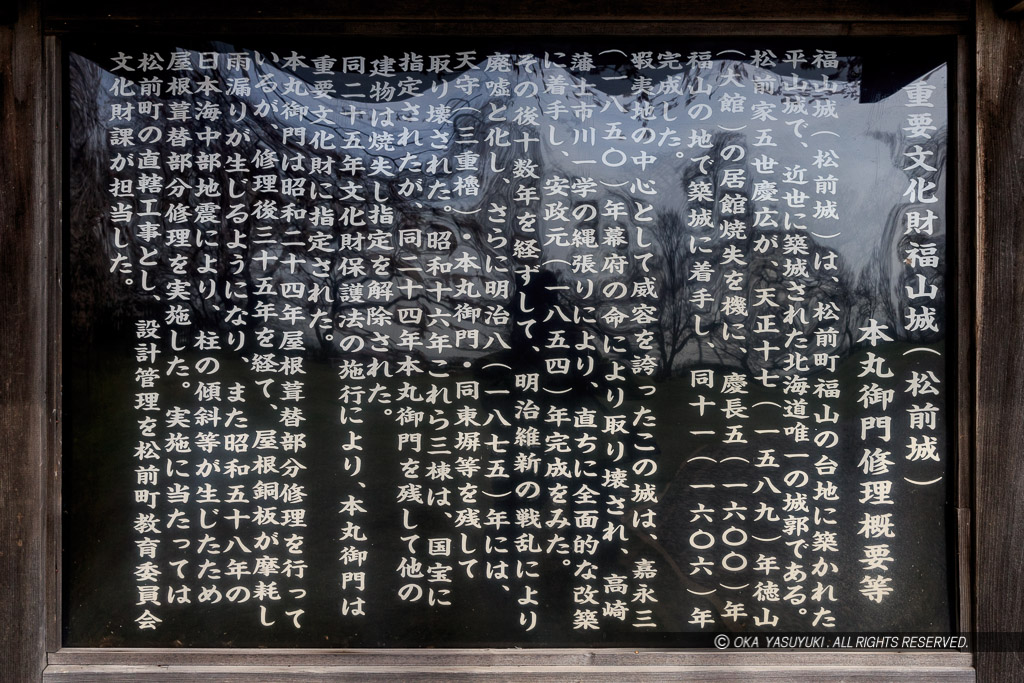 重要文化財福山城(松前城)
本丸御門修理概要等
福山城(松前城)は、松前町福山の台地に築かれた
平山城で、近世に築城された北海道唯一の城郭である。
松前家五世慶広が、天正十七(一五八九)年徳山
(大館)の居館焼失を機に、慶長五(一六〇〇)年
福山の地で築城に着手し、同十一(一六〇六)年
完成した。
蝦夷地の中心として威容を誇ったこの城は、嘉永三
(一八五〇)年幕府の命により取り壊され、高崎
藩士市川一学の縄張りにより、直ちに全面的な改築
に着手し、安政元(一八五四)年完成をみた。
その後十数年を経ずして、明治維新の戦乱により
廃墟と化し、さらに明治八(一八七五)年には、
天守(三重櫓)・本丸御門・同東塀等を残して
取り壊された。昭和十六年これら三棟は、国宝に
指定されたが、同二十四年本丸御門を残して他の
建物は焼失し指定を解除された。
同二十五年文化財保護法の施行により、本丸御門は
重要文化財に指定された。
本丸御門は昭和二十四年屋根葺替部分修理を行って
いるが、修理後三十五年を経て、屋根銅板が摩耗し
雨漏りが生じるようになり、また昭和五十八年の
日本海中部地震により、柱の傾斜等が生じたため
屋根葺替部分修理を実施した。実施に当たっては
松前町の直轄工事とし、設計管理を松前町教育委員会
文化財課が担当した。
© OKA YASUYUKI. ALL RIGHTS RESERVED.